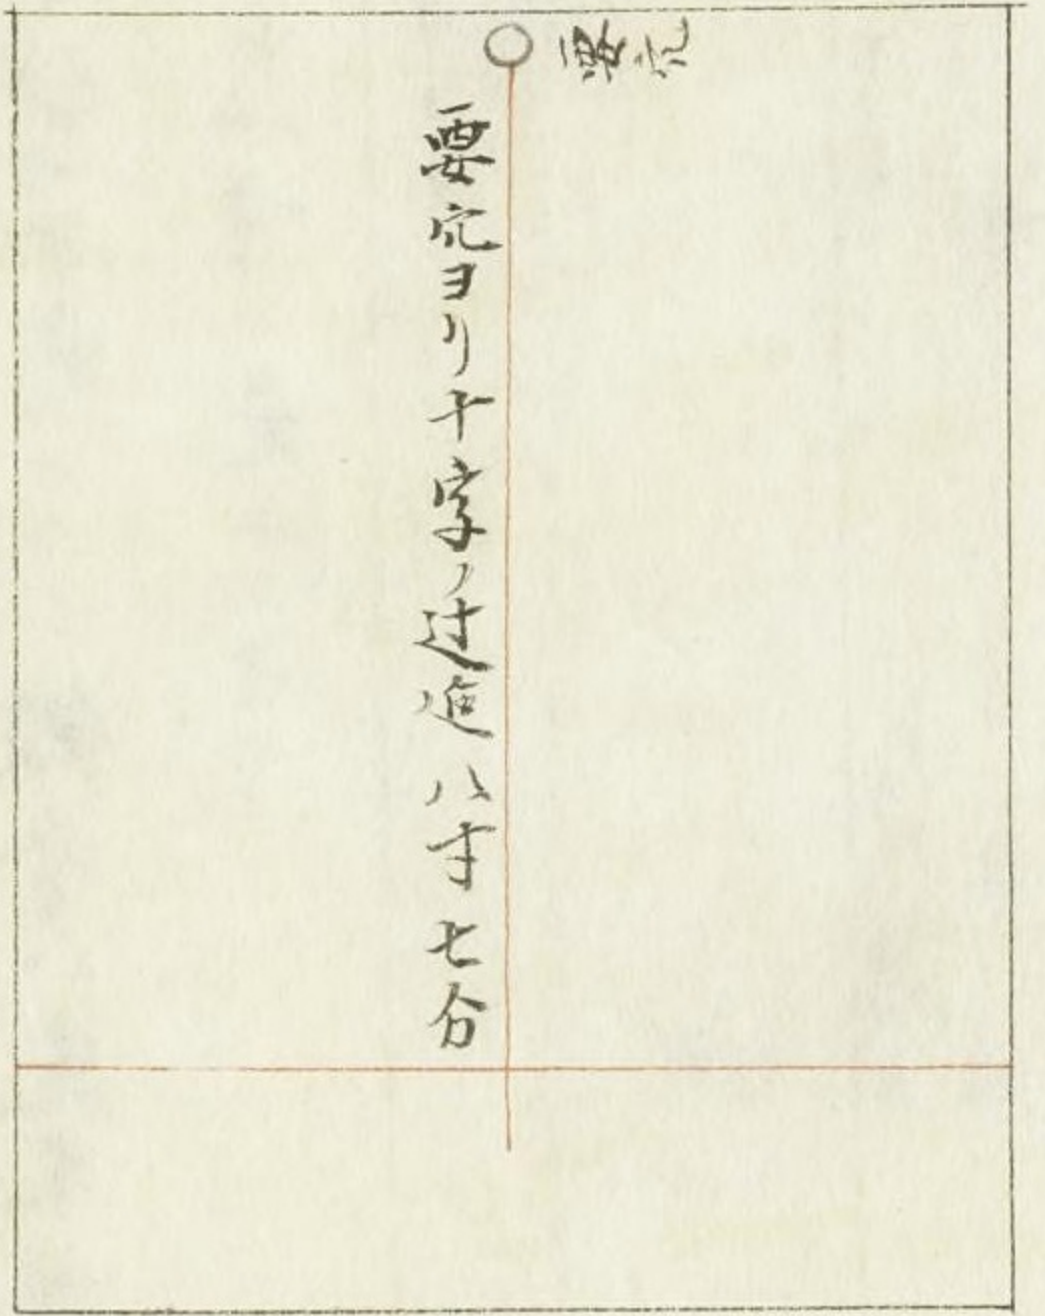 要穴
要穴ヨリ十字ノ辻迄八寸七分